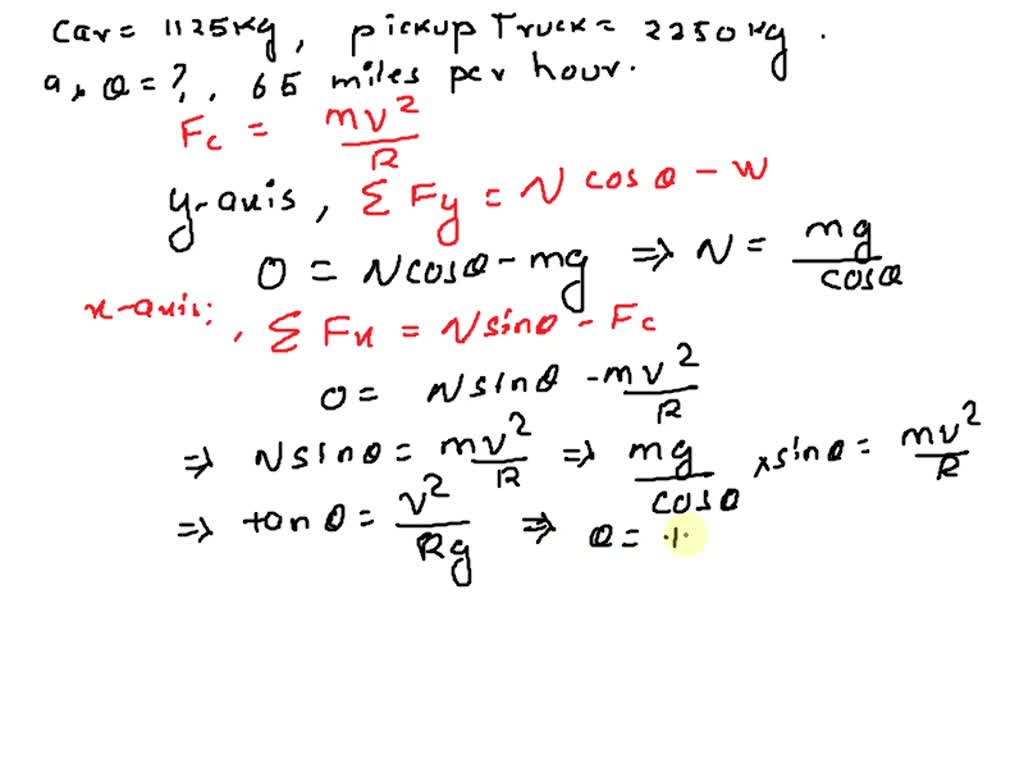 Car = 1125 kg, pickup Truck = 2250 kg.
a, θ = ?, 65 miles per hour.
Fc = mv²/R
y-axis, Σ Fy = N cos θ - W
0 = N cos θ - mg ⇒ N = mg/cos θ
x-axis:, Σ Fx = N sin θ - Fc
0 = N sin θ - mv²/R
⇒ N sin θ = mv²/R ⇒ mg/cos θ × sin θ = mv²/R
⇒ tan θ = v²/Rg ⇒ θ =